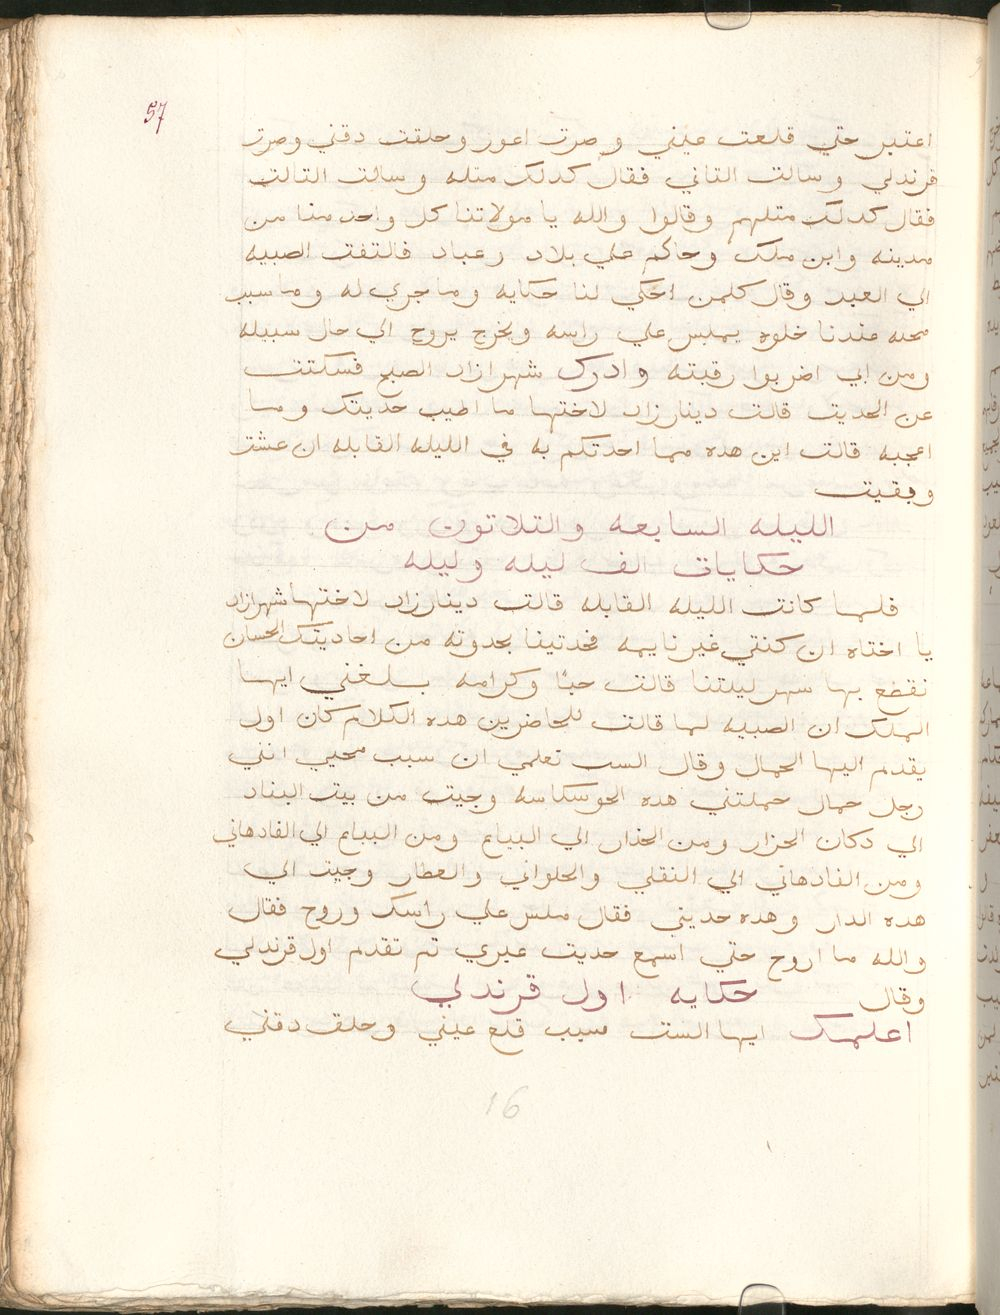 57
اعتبر حتي قلعت عيني وصرت اعور وحلقت دقني وصرت
قرندلي وسالت التاني فقال كدلك متله وسالت التالت
فقال كدلك متلهم وقالوا والله يا مولاتنا كل واحد منا من
مدينه وابن ملك وحاكم علي بلاد وعباد فالتفت الصبيه
الي العبد وقال كلمن احكي لنا حكايه وما جري له وما سبب
محيه عندنا خلوه يملس علي راسه ويخرج يروح الي حال سبيله
ومن ابي اضربوا رقبته وادرك شهرازاد الصبح فسكتت
عن الحديت قالت دينارزاد لاختها ما اطيب حديتك وما
اعجبه قالت اين هده مما احدتكم به في الليله القابله ان عشت
وبقيت
الليله السابعه والتلاتون من
حكايات الف ليله وليله
فلما كانت الليله القابله قالت دينارزاد لاختها شهرازاد
يا اختاه ان كنتي غير نايمه فحدتينا بحدوته من احاديتك الحسان
نقطع بها سهر ليلتنا قالت حبًا وكرامه بلغني ايها
الملك ان الصبيه لما قالت للحاضرين هده الكلام كان اول
يقدم اليها الحمال وقال الست تعلمي ان سبب محيي انني
رجل حمال حملتني هده الحوسكاسه وجيت من بيت النباد
الي دكان الجزار ومن الجزار الي البياع ومن البياع الي الفاكهاني
ومن الفاكهاني الي النقلي والحلواني والعطار وجيت الي
هده الدار وهده حديتي فقال ملس علي راسك وروح فقال
والله ما اروح حتي اسمع حديت غيري تم تقدم اول قرندلي
وقال حكايه اول قرندلي
اعلمك ايها الست سبب قلع عيني وحلق دقني
16